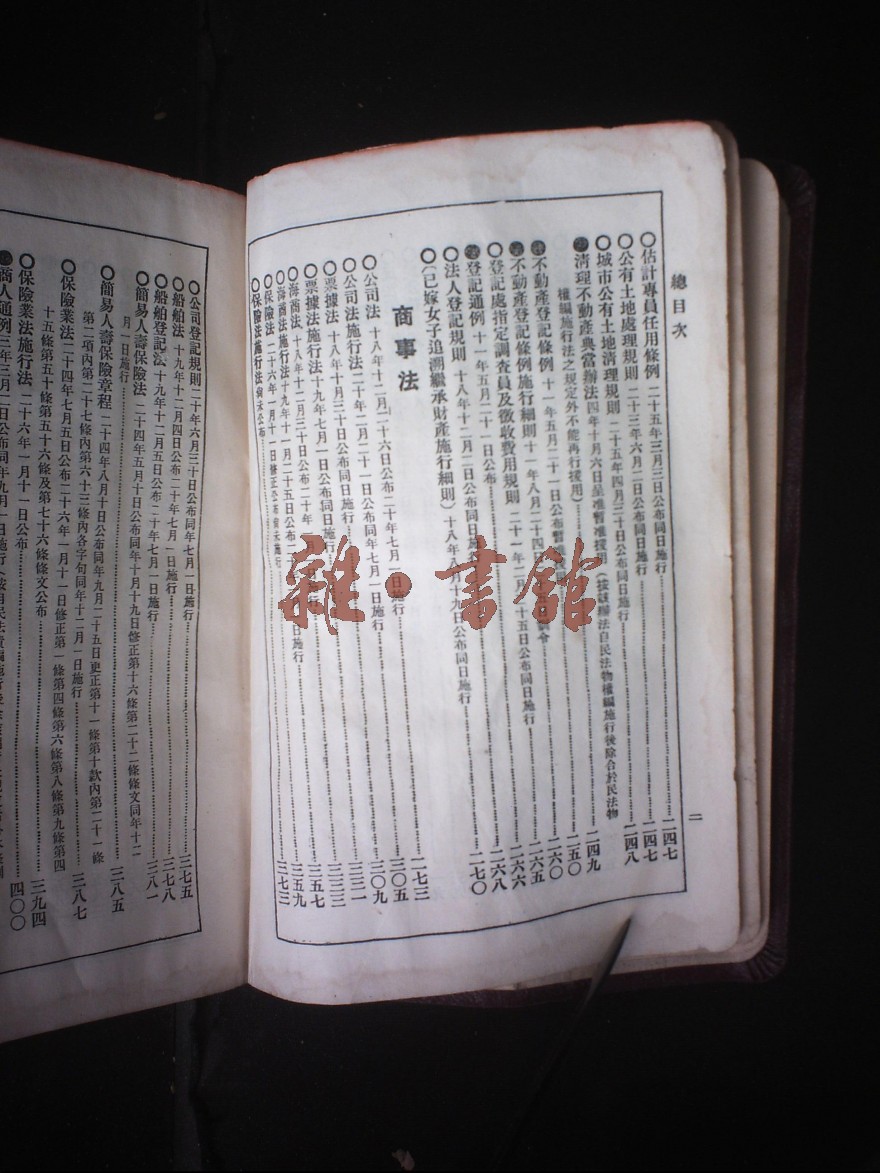 總目次
二
〇估計專員任用條例 二十五年三月三日公布同日施行…………一四七
〇公有土地處理規則 二十三年六月二日公布同日施行…………一四七
〇城市公有土地清理規則 二十五年四月三十日公布同日施行…………一四八
淸理不動產典當辦法 四年十月六日呈准暫准援用(按該辦法自民法物權編施行後除合於民法物
權編施行法之規定外不能再行援用)…………一四九
不動產登記條例 十一年五月二十一日公布…………一五〇
不動產登記條例施行細則 十一年八月二十四日…………一六〇
〇登記處指定調查員及徵收費用規則 二十一年二月十五日公布同日施行…………一六五
登記通例 十一年五月二十一日公布…………一六六
〇法人登記規則 十八年十二月二日公布同日施行…………一六八
〇(已嫁女子追溯繼承財產施行細則) 十八年八月十九日公布同日施行…………一七〇
商事法
一七三
〇公司法 十八年十二月二十六日公布二十年七月一日施行…………三〇五
〇公司法施行法 二十年二月二十一日公布同年七月一日施行…………三〇九
〇票據法 十八年十月三十日公布同日施行…………三三一
〇票據法施行法 十九年七月一日公布同日施行…………三三三
〇海商法 十八年十二月三十日公布二十年一月一日施行…………三五七
〇海商法施行法 十九年十一月二十五日公布二十年一月一日施行…………三五九
〇保險法 二十六年一月十一日修正公布尚未施行…………三七三
〇保險法施行法 尙未公布
〇公司登記規則 二十年六月三十日公布同年七月一日施行…………三七五
〇船舶法 十九年十二月四日公布二十年七月一日施行…………三七八
〇船舶登記法 十九年十二月五日公布二十年七月一日施行…………三八一
〇簡易人壽保險法 二十四年五月十日公布同年十月十九日修正第十六條第二十二條條文同年十二
月一日施行…………三八五
〇簡易人壽保險章程 二十四年八月十日公布同年九月二十五日更正第十一條第十款內第二十一條
第二項內第二十七條內第六十三條內各字句同年十二月一日施行…………三八七
〇保險業法 二十四年七月五日公布二十六年一月十一日修正第一條第四條第六條第八條第九條第四
十五條第五十六條及第七十六條條文公布…………三九四
〇保險業法施行法 二十六年一月十一日公布…………四〇〇
商人通例 三年三月二日公布同年九月一日施行
雜·書館